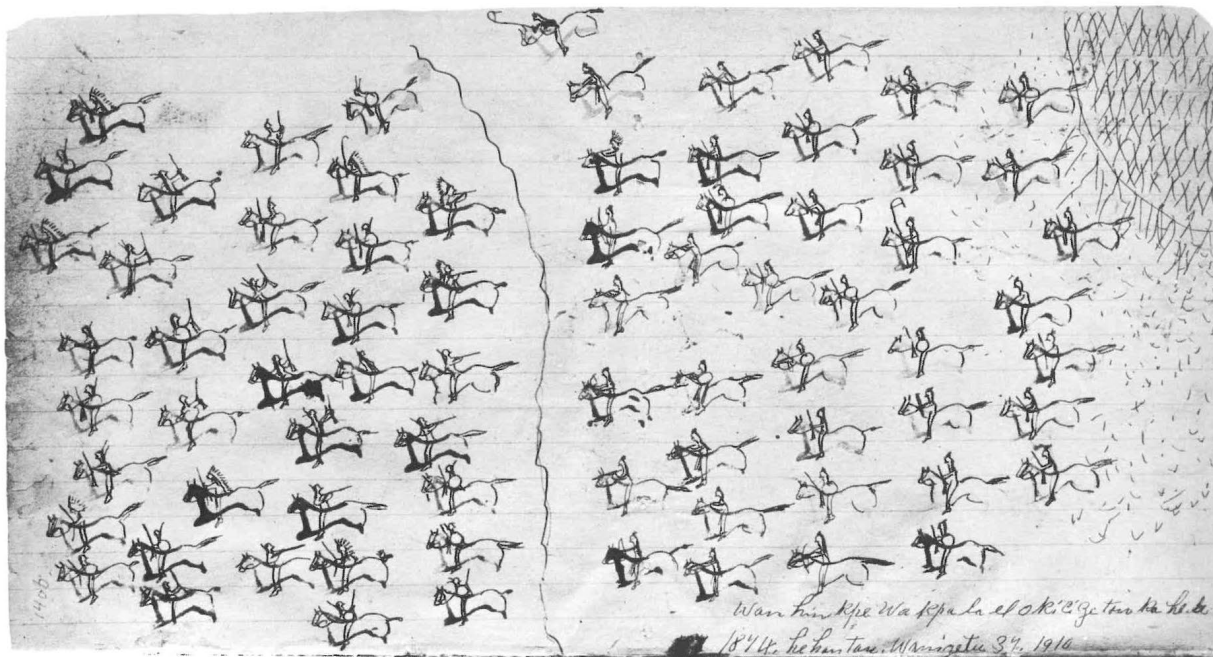 Wan hin kpe Wa kpa la el o kicize tan ka he le
1874. he han tan. Wanigetu 37. 1910
1406